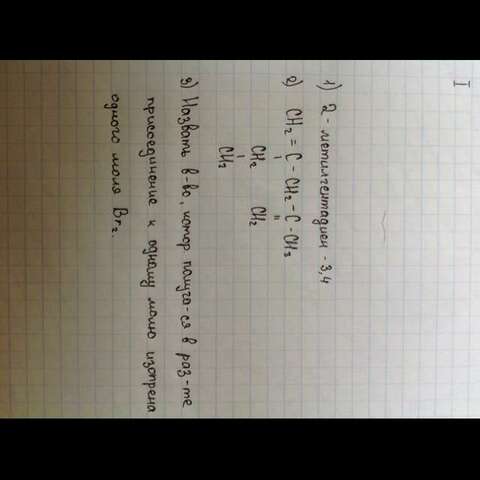 I
1) 2 - метилгептадиен - 3,4
2) CH₂ = C - CH₂ - C - CH₃
CH₂ CH₂
CH₃
3) Назвать в-во, котор получа-ся в раз-те
присоединение к одному молю изопрена
одного моля Br₂.